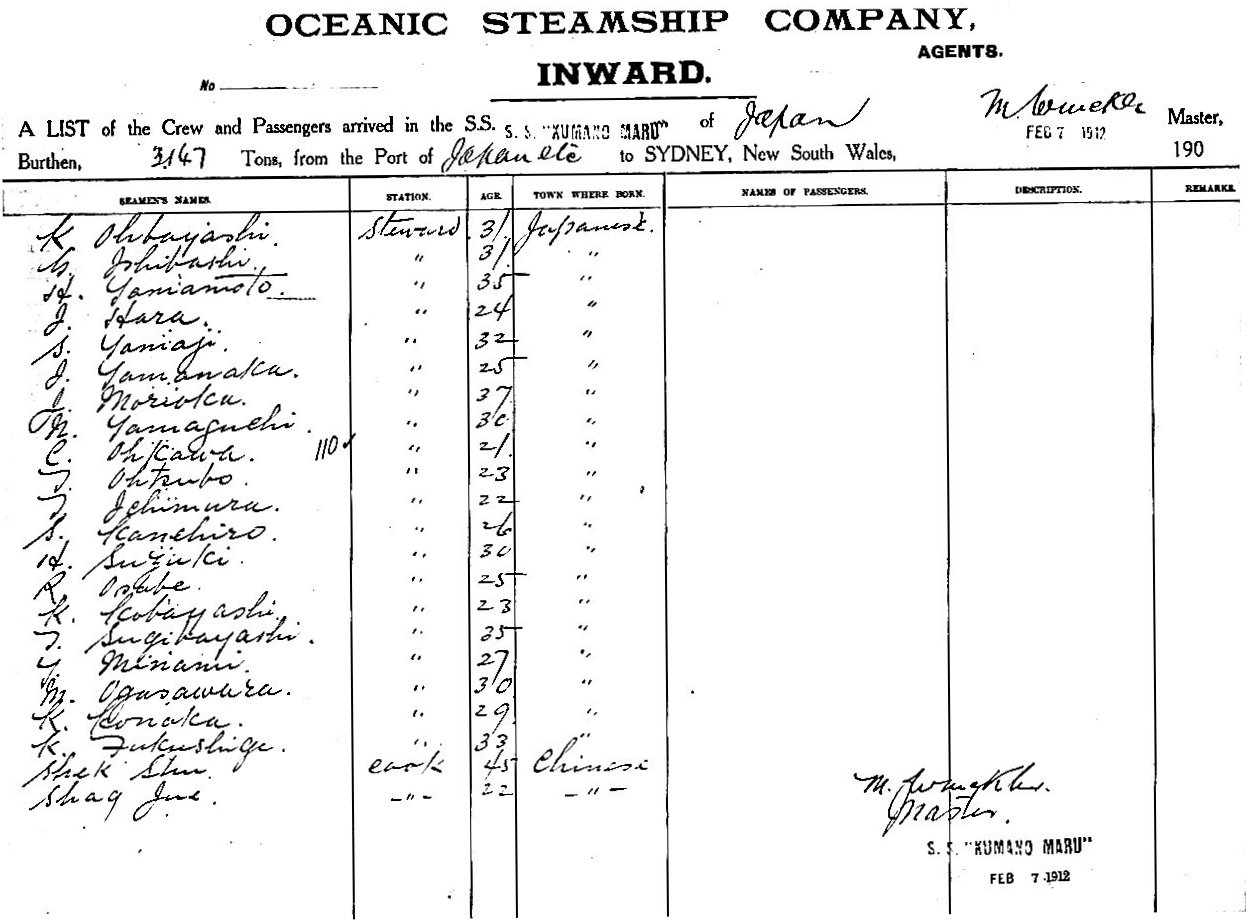 OCEANIC STEAMSHIP COMPANY,
AGENTS.
INWARD.
No
A LIST of the Crew and Passengers arrived in the S.S. S. S. "KUMANO MARU" of Japan M. Winckler Master,
FEB 7 1912
Burthen, 3147 Tons, from the Port of Japan etc to SYDNEY, New South Wales, 190
SEAMEN'S NAMES. STATION. AGE. TOWN WHERE BORN. NAMES OF PASSENGERS. DESCRIPTION. REMARKS.
K. Ohbayashi. Steward 31. Japanese.
G. Ishibashi. " 31. "
H. Yamamoto. " 35 "
J. Hara. " 24 "
S. Yamaji. " 32 "
J. Yamanaka. " 25 "
I. Morioka. " 37 "
N. Yamaguchi. " 30 "
C. Ohkawa. 110 " 21. "
T. Ohtsubo. " 23 "
T. Ichimura. " 22 "
S. Kanehiro. " 26 "
H. Suzuki. " 30 "
R. Osabe. " 25 "
K. Kobayashi. " 23 "
T. Sugibayashi. " 35 "
Y. Minami. " 27 "
M. Ogasawara. " 30 "
K. Konaka. " 29 "
K. Fukushige. " 33 "
Shek Shu. cook 45 Chinese
Shag Jue. -"- 22 -"-
M. Winckler.
Master.
S. S. "KUMANO MARU"
FEB 7 1912